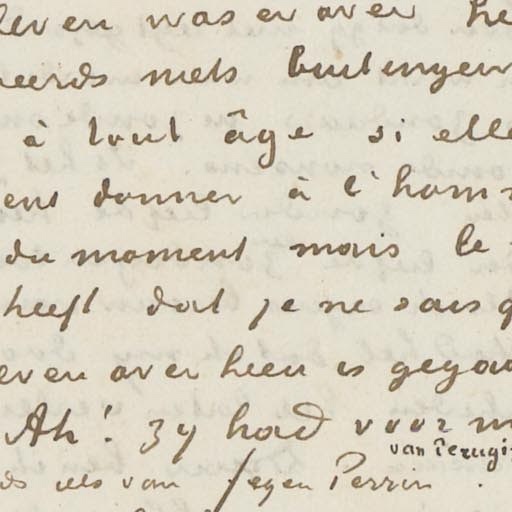 leven was er over he
eerds niets buitengew
a tout âge si elle
ent donner à l'hom
du moment mais le
heeft dat je ne sais q
even over heen is gegaa
Ah! zy had voor m
van Perugi
ds iets van Jegen Perrin